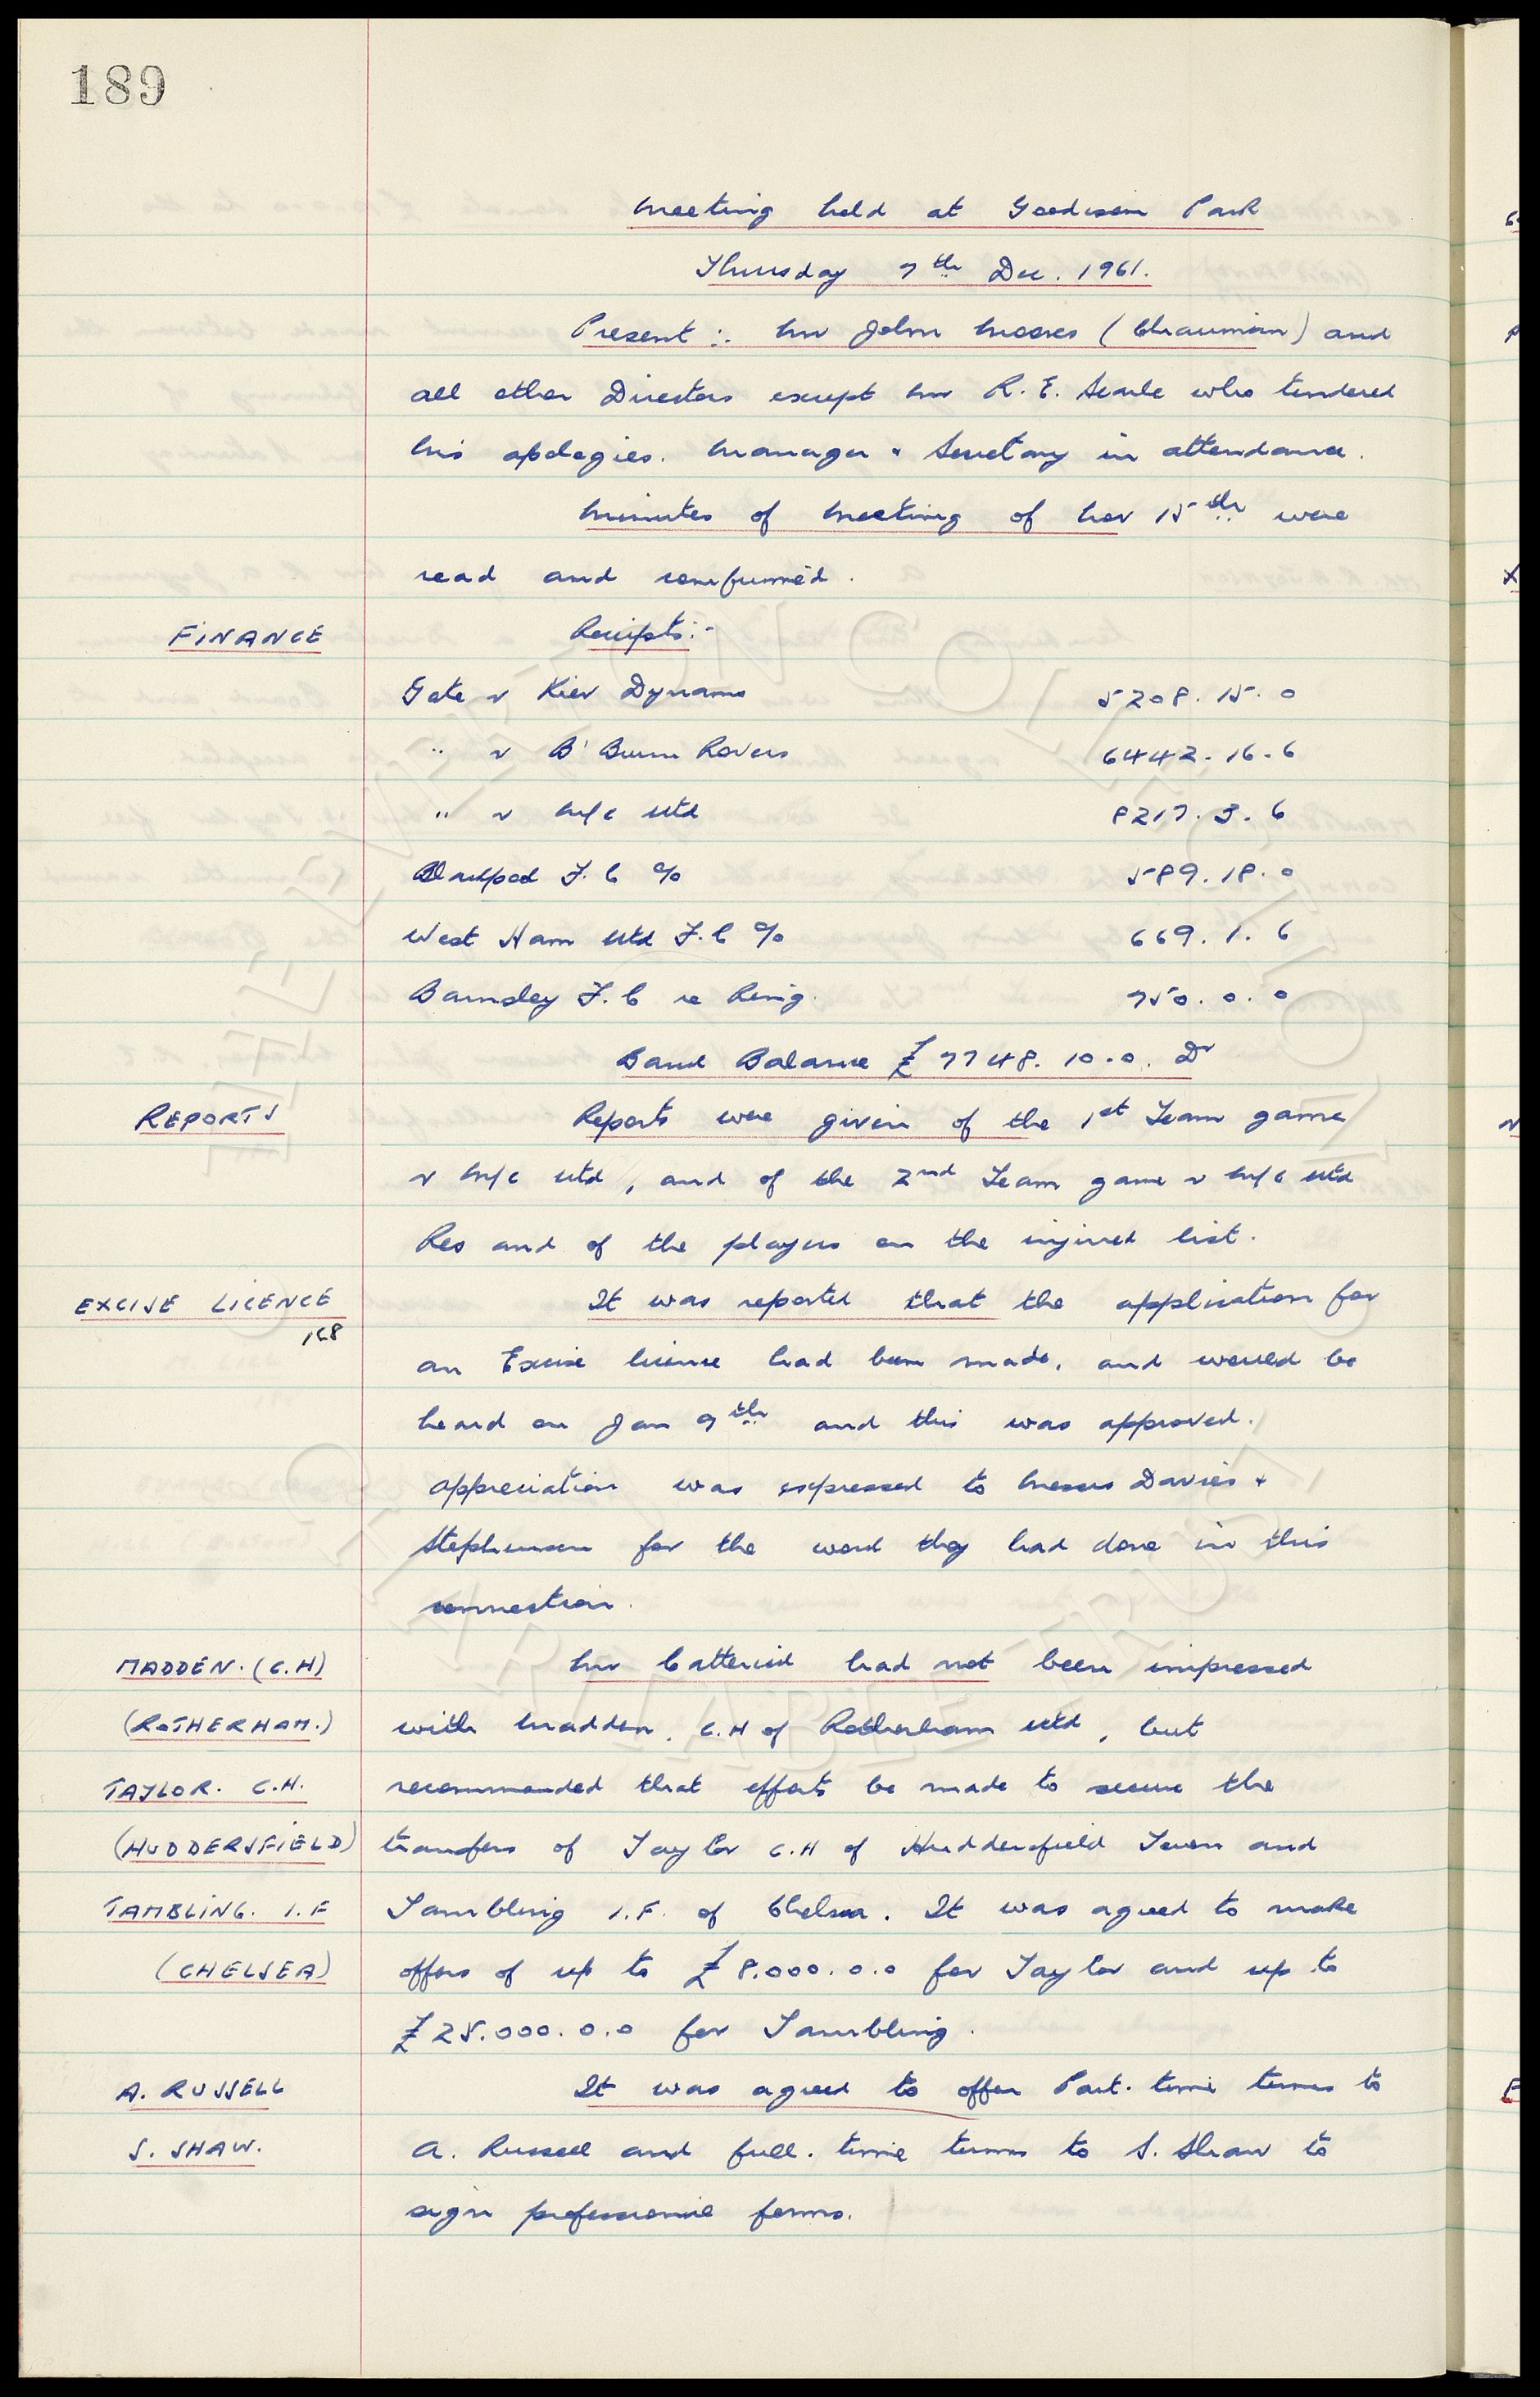 189
Meeting held at Goodison Park
Thursday 7th Dec. 1961.
Present :- Mr John Moores (Chairman) and
all other Directors except Mr R. E. Searle who tendered
his apologies. Manager & Secretary in attendance.
Minutes of Meeting of Nov 15th were
read and confirmed.
FINANCE Receipts:-
Gate v Kiev Dynamo 5208. 15. 0
" v B'Burn Rovers 6442. 16. 6
" v M/c Utd 8217. 3. 6
Blackpool F.C % 589. 18. 0
West Ham Utd F.C % 669. 1. 6
Barnsley F.C re Ring. 750. 0. 0
Bank Balance £7748. 10. 0. Dr
REPORTS Reports were given of the 1st Team game
v M/c Utd, and of the 2nd Team game v M/c Utd
Res and of the players on the injured list.
EXCISE LICENCE It was reported that the application for
168 an Excise license had been made, and would be
heard on Jan 9th and this was approved.
Appreciation was expressed to Messrs Davies &
Stephenson for the work they had done in this
connection.
MADDEN. (C.H) Mr Catterick had not been impressed
(ROTHERHAM.) with Madden, C.H of Rotherham Utd, but
TAYLOR. C.H. recommended that efforts be made to secure the
(HUDDERSFIELD) transfers of Taylor C.H of Huddersfield Town and
TAMBLING. I.F Tambling I.F. of Chelsea. It was agreed to make
(CHELSEA) offers of up to £8.000.0.0 for Taylor and up to
£25.000.0.0 for Tambling.
A. RUSSELL It was agreed to offer Part-time terms to
S. SHAW. A. Russell and full-time terms to S. Shaw to
sign professional forms.